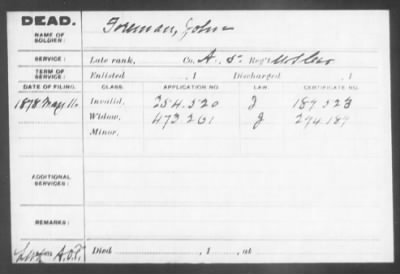 DEAD.
NAME OF SOLDIER: Foreman, John
SERVICE: Late rank, Co. A. 5" Reg't US Cav
TERM OF SERVICE: Enlisted , 1 Discharged , 1
DATE OF FILING. CLASS. APPLICATION NO. LAW. CERTIFICATE NO.
1878 May 11 Invalid, 254.520 J 189.523
Widow, 473.261 J 294.187
Minor,
ADDITIONAL SERVICES:
REMARKS:
Died , 1 , at